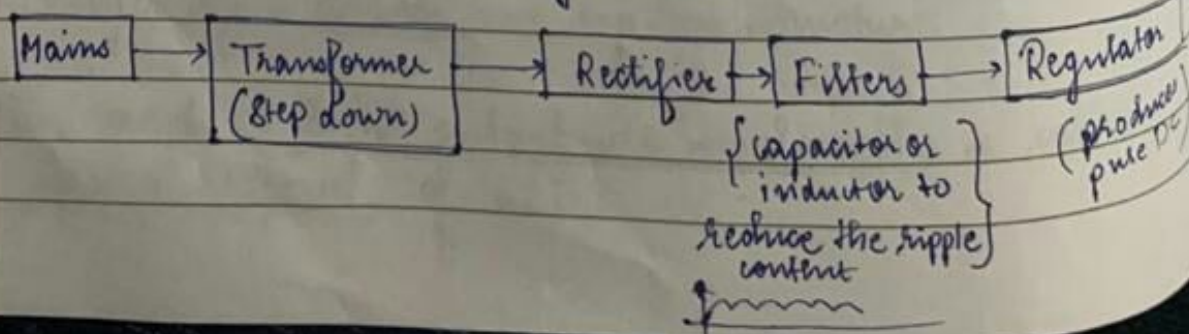 Mains
Transformer
(Step down)
Rectifier
Filters
Regulator
{capacitor or
inductor to
reduce the ripple}
content
(produces
pure DC)